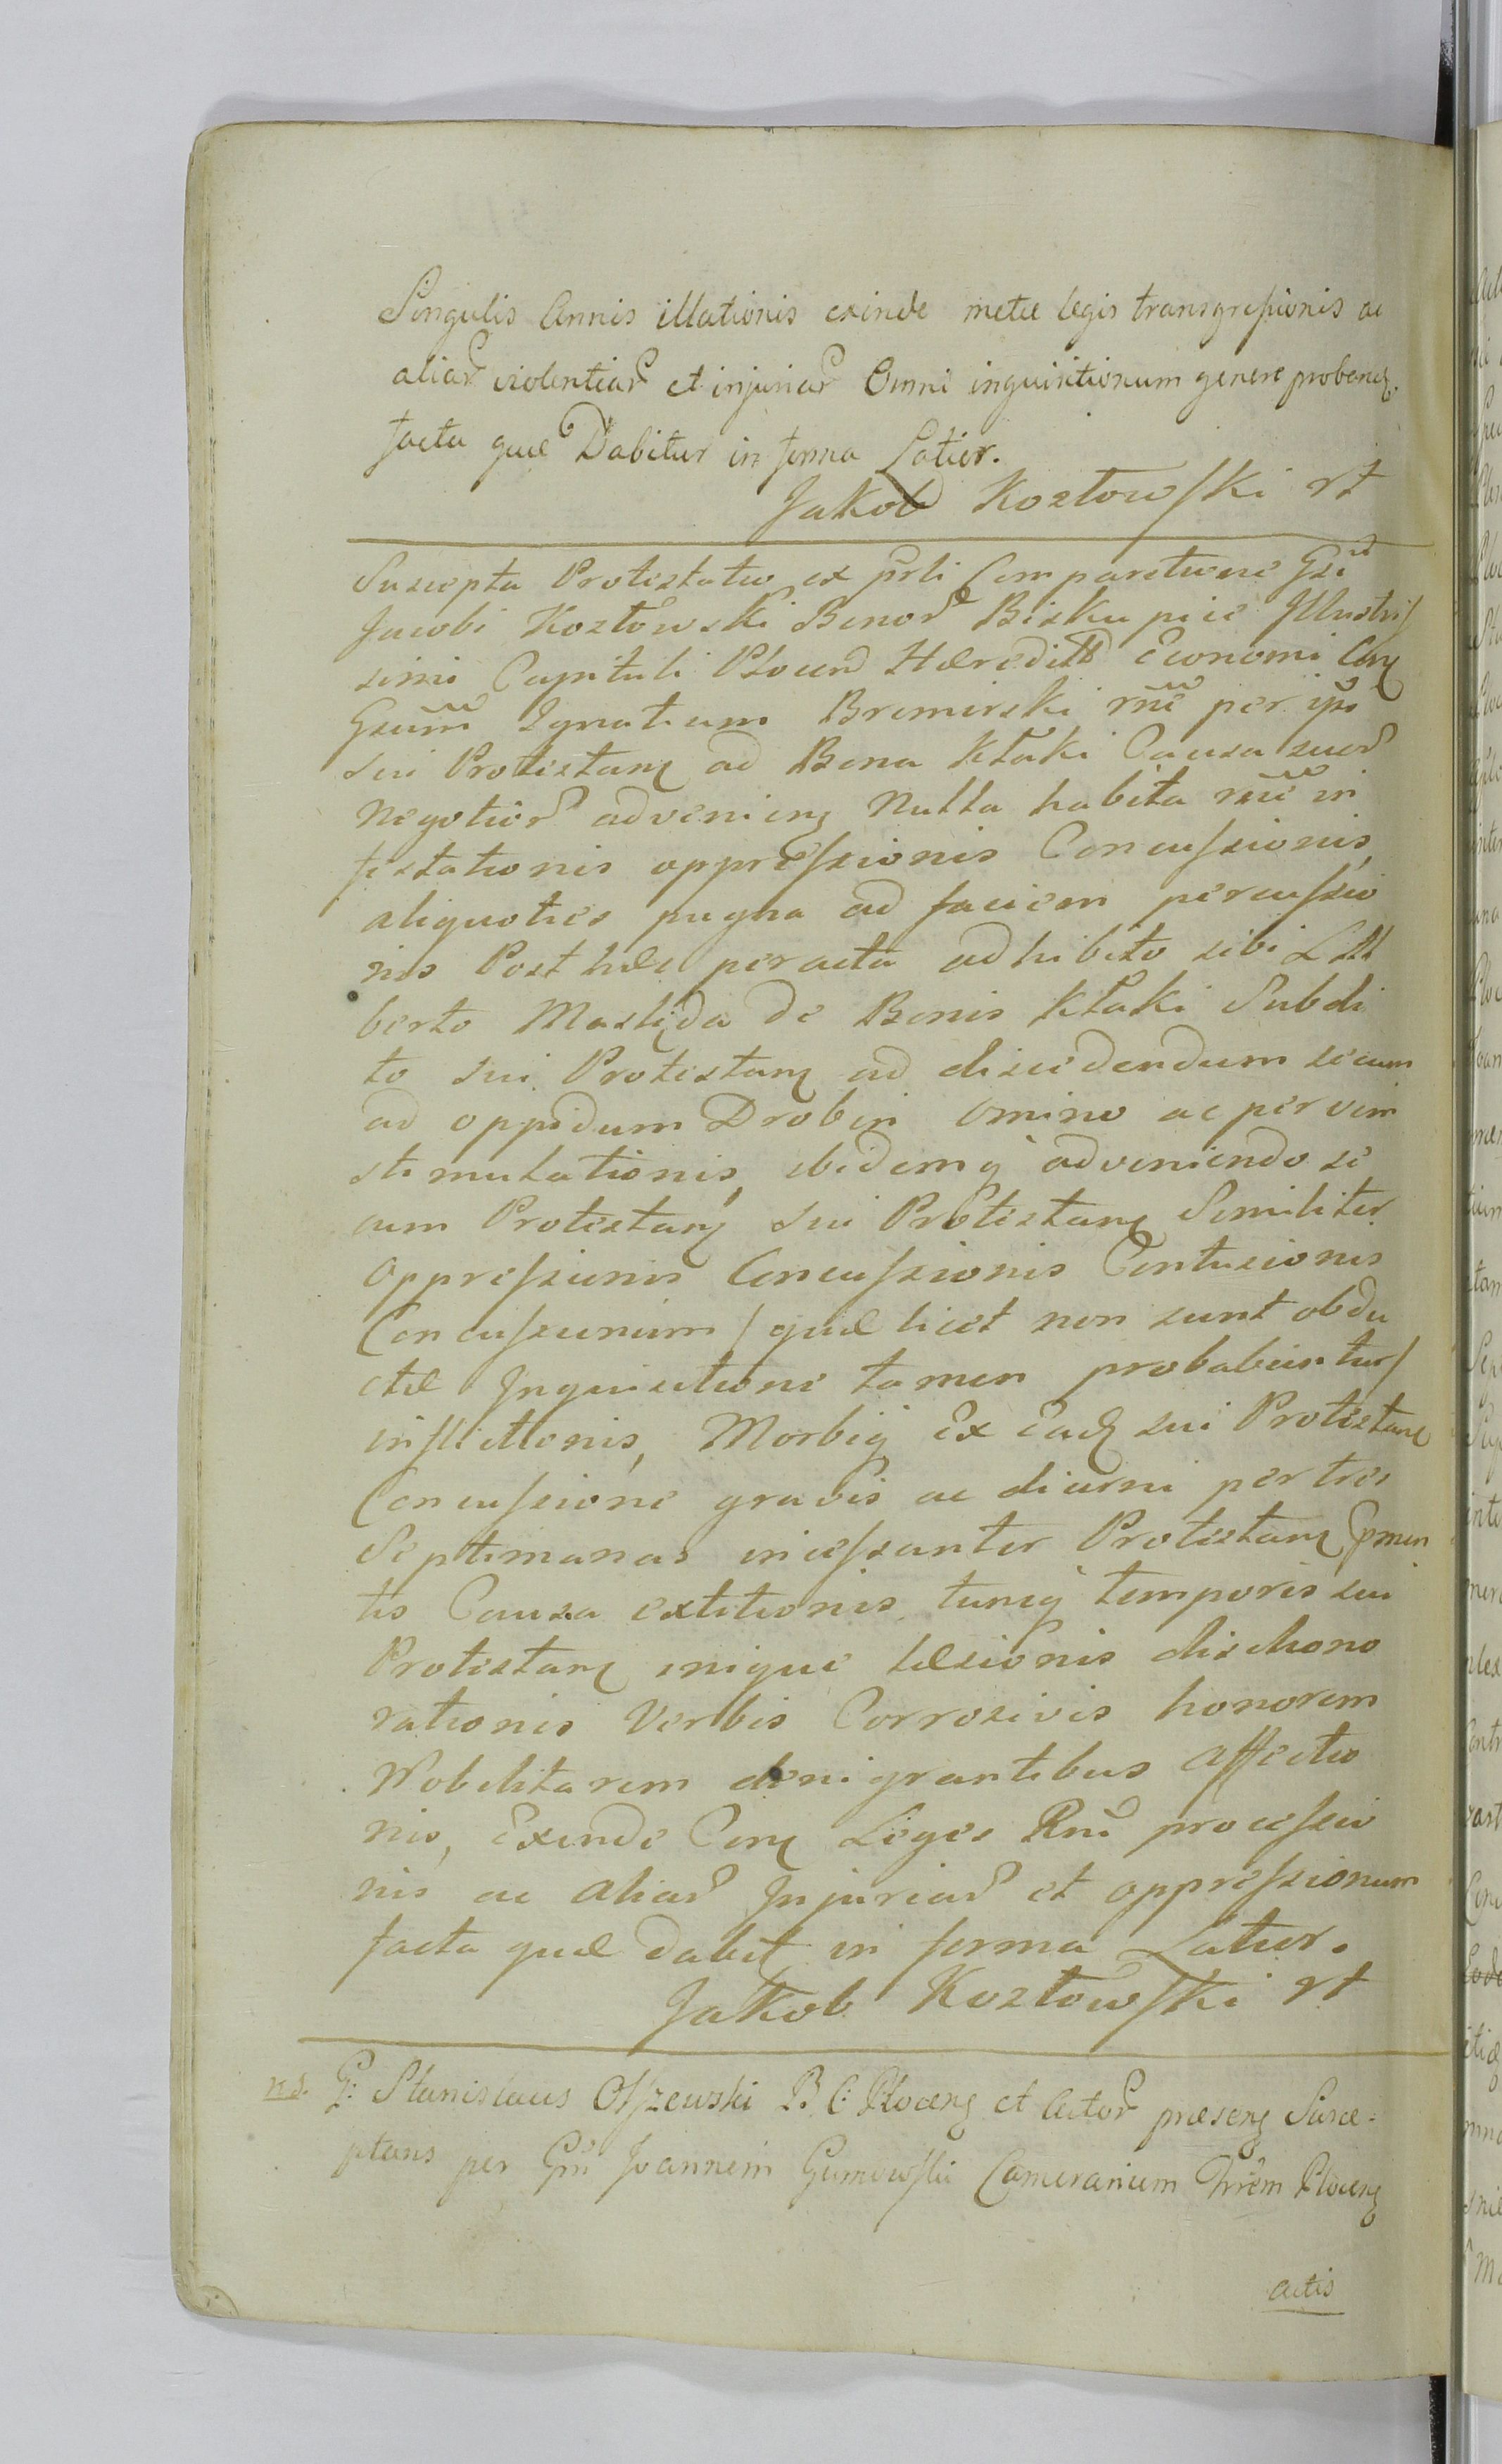 Singulis Annis illationis exinde metae legis transgressionis ac
aliar violentiar et injuriar Omni inquisitionum genere probend.
facta quae Dabitur in forma Latior.
Jakob Kozłowski rt
Suscepta Protestatio ex prsli Comparitione Gsi
Jacobi Kozłowski Bonor Biskupice Illustris
simi Capituli Plocen Haeredittt Economi Con
Gsum Ignatium Bromirski rne per ipsi
sui Protestan ad Bona Kłaki Causa suor
Negotior advenien Nulla habita rne in
festationis oppressionis Concussionis,
aliquoties pugna ad faciem percussio
nis Post haec peracta adhibito sibi
berto Maslęda de Bonis Kłaki Subdi
to sui Protestan ad discedendum secum
ad oppidum Drobin omino ac per vim
stimulationis, ibidemq adveniendo se
cum Protestan sui Protestan Similiter
Oppressionis Concussionis Contusionis
Concussionum / quae licet non sunt obdu
ctae Inquisitione tamen probabuntur /
inflictionis, Morbiq Ex ead sui Protestan
Concussione gravis ac diurni per tres
Septimanas incessanter Protestan prmen
tis Causa extitionis tunq temporis sui
Protestan inique laesionis dishono
rationis Verbis Corrosivis honorem
Nobilitarem denigrantibus Affectio
nis, Exinde Con Leges Rni processio
nis ac aliar Injuriar et oppressionum
facta quae dabit in forma Latior.
Jakob Kozłowski rt
nd. G: Stanislaus Olszewski B. C: Plocen et Actor praesen Susce-
ptans per Gm Joannem Gumowski Camerarium Trrem Plocen
actis